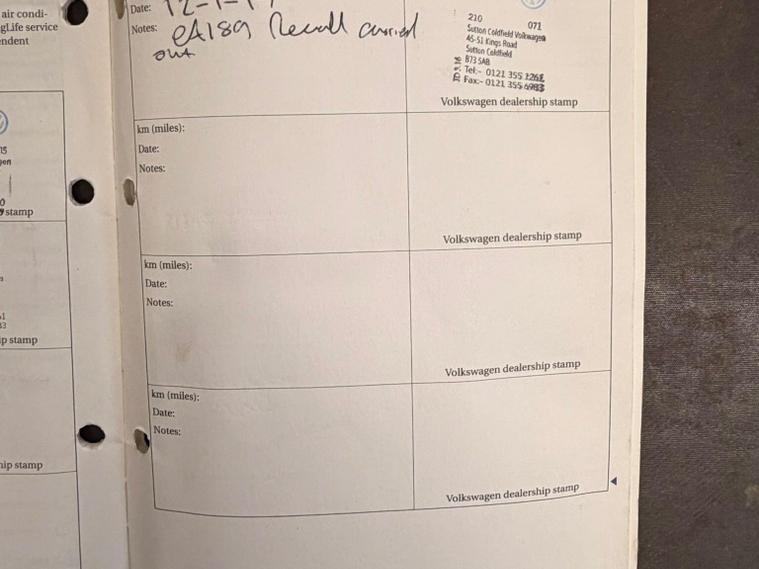 air condi-
gLife service
ndent
15
gen
0
stamp
p stamp
hip stamp
Date: 12-1-1
Notes: eA189 Recall carried
out
210 071
Sutton Coldfield Volkswagen
45-51 Kings Road
Sutton Coldfield
B73 5AB
Tel:- 0121 355 1261
Fax:- 0121 355 6983
Volkswagen dealership stamp
km (miles):
Date:
Notes:
Volkswagen dealership stamp
km (miles):
Date:
Notes:
Volkswagen dealership stamp
km (miles):
Date:
Notes:
Volkswagen dealership stamp